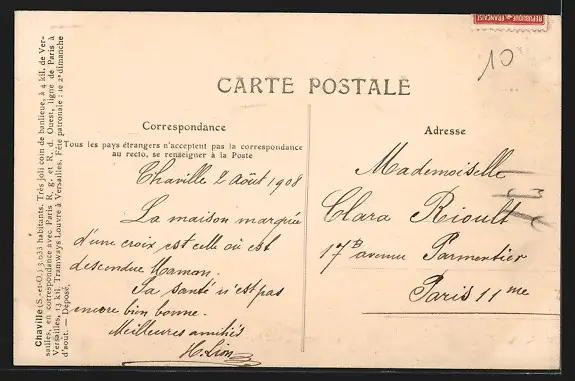 RÉPUBLIQUE FRANÇAISE
10
CARTE POSTALE
Correspondance
Tous les pays étrangers n'acceptent pas la correspondance
au recto, se renseigner à la Poste
Chaville 2 Août 1908
La maison marquée
d'une croix est celle où est
descendue Maman.
Sa santé n'est pas
encore bien bonne.
Meilleures amitiés
H. Lion
Adresse
Mademoiselle
Clara Rioult
17 B avenue Parmentier
Paris 11 me
Chaville (S.-et-O.) 3.633 habitants. Très joli coin de banlieue, à 4 kil. de Ver-
sailles, en correspondance avec Paris R. g. et R. d. Ouest, ligne de Paris à
Versailles, 13 kil. Tramways Louvre à Versailles. Fête patronale : le 2e dimanche
d'août. — Déposé.